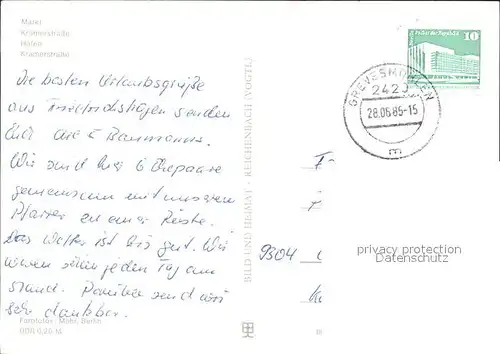 Markt
Krämerstraße
Hafen
Krämerstraße
Die besten Urlaubsgrüße
aus senden
Euch die 5 Baumanns.
Wir sind hier 6 Ehepaare
gemeinsam mit unserem
Pfarrer zu einer Rüste.
Das Wetter ist bis gut. Wir
waren schon jeden Tag am
Strand. Darüber sind wir
sehr dankbar.
Farbfotos: Mohr, Berlin
BILD UND HEIMAT · REICHENBACH (VOGTL)
Palast der Republik
10
GREVESMÜHLEN
2420
28.06.85-15
m
9304
privacy protection
Datenschutz